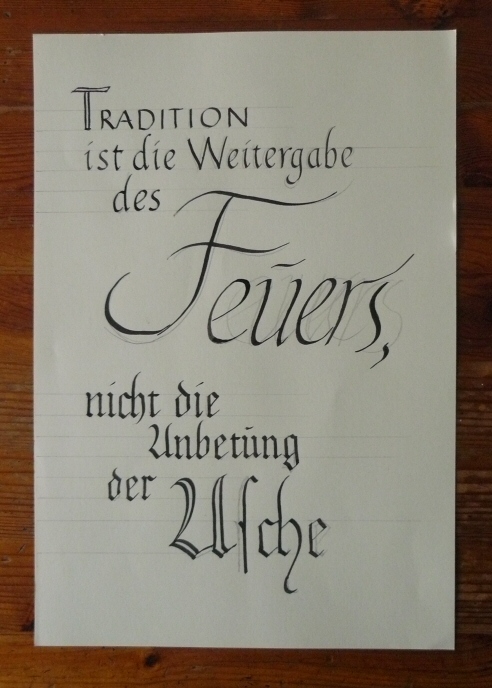 TRADITION
ist die Weitergabe
des
Feuers,
nicht die
Anbetung
der
Aſche